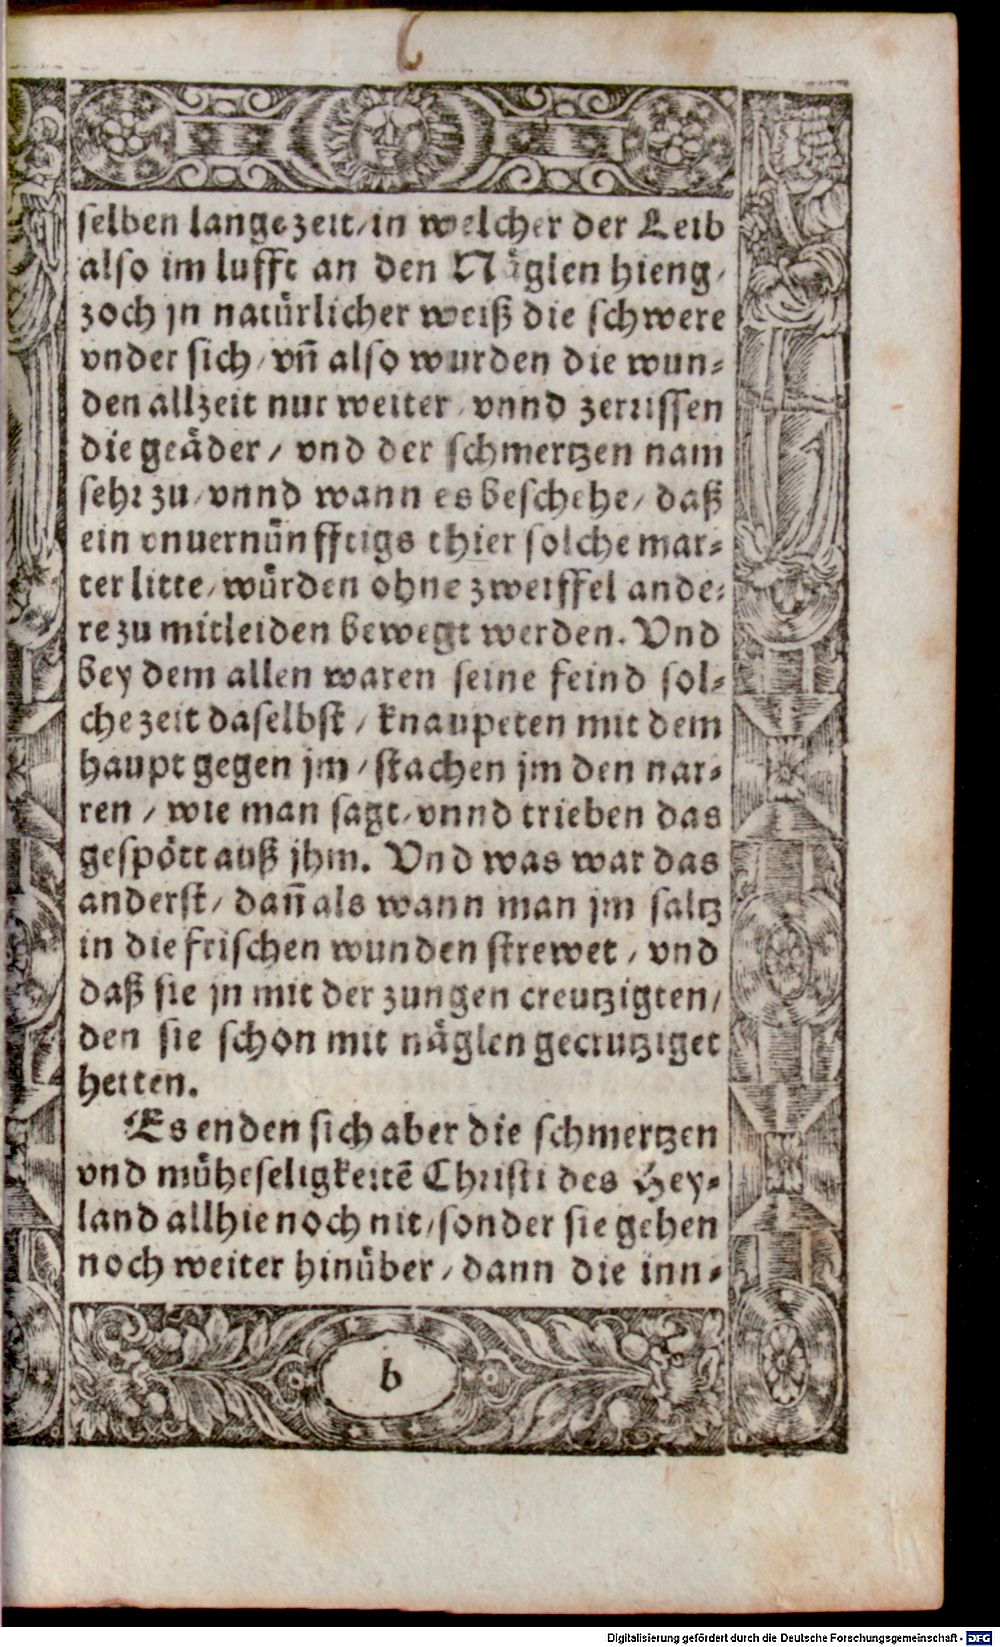 selben lange zeit/ in welcher der Leib
also im lufft an den Näglen hieng/
zoch jn natürlicher weiß die schwere
vnder sich/ vñ also wurden die wun-
den allzeit nur weiter/ vnnd zerrissen
die geäder/ vnd der schmertzen nam
sehr zu/ vnnd wann es beschehe/ daß
ein vnuernünfftigs thier solche mar-
ter litte/ würden ohne zweiffel ande-
re zu mitleiden bewegt werden. Vnd
bey dem allen waren seine feind sol-
che zeit daselbst/ knaupeten mit dem
haupt gegen jm/ stachen jm den nar-
ren/ wie man sagt/ vnnd trieben das
gespött auß jhm. Vnd was war das
anderst/ dañ als wann man jm saltz
in die frischen wunden strewet/ vnd
daß sie jn mit der zungen creutzigten/
den sie schon mit näglen gecrutziget
hetten.
Es enden sich aber die schmertzen
vnd müheseligkeitē Christi des Hey-
land allhie noch nit/ sonder sie gehen
noch weiter hinüber/ dann die inn-
b
Digitalisierung gefördert durch die Deutsche Forschungsgemeinschaft - DFG